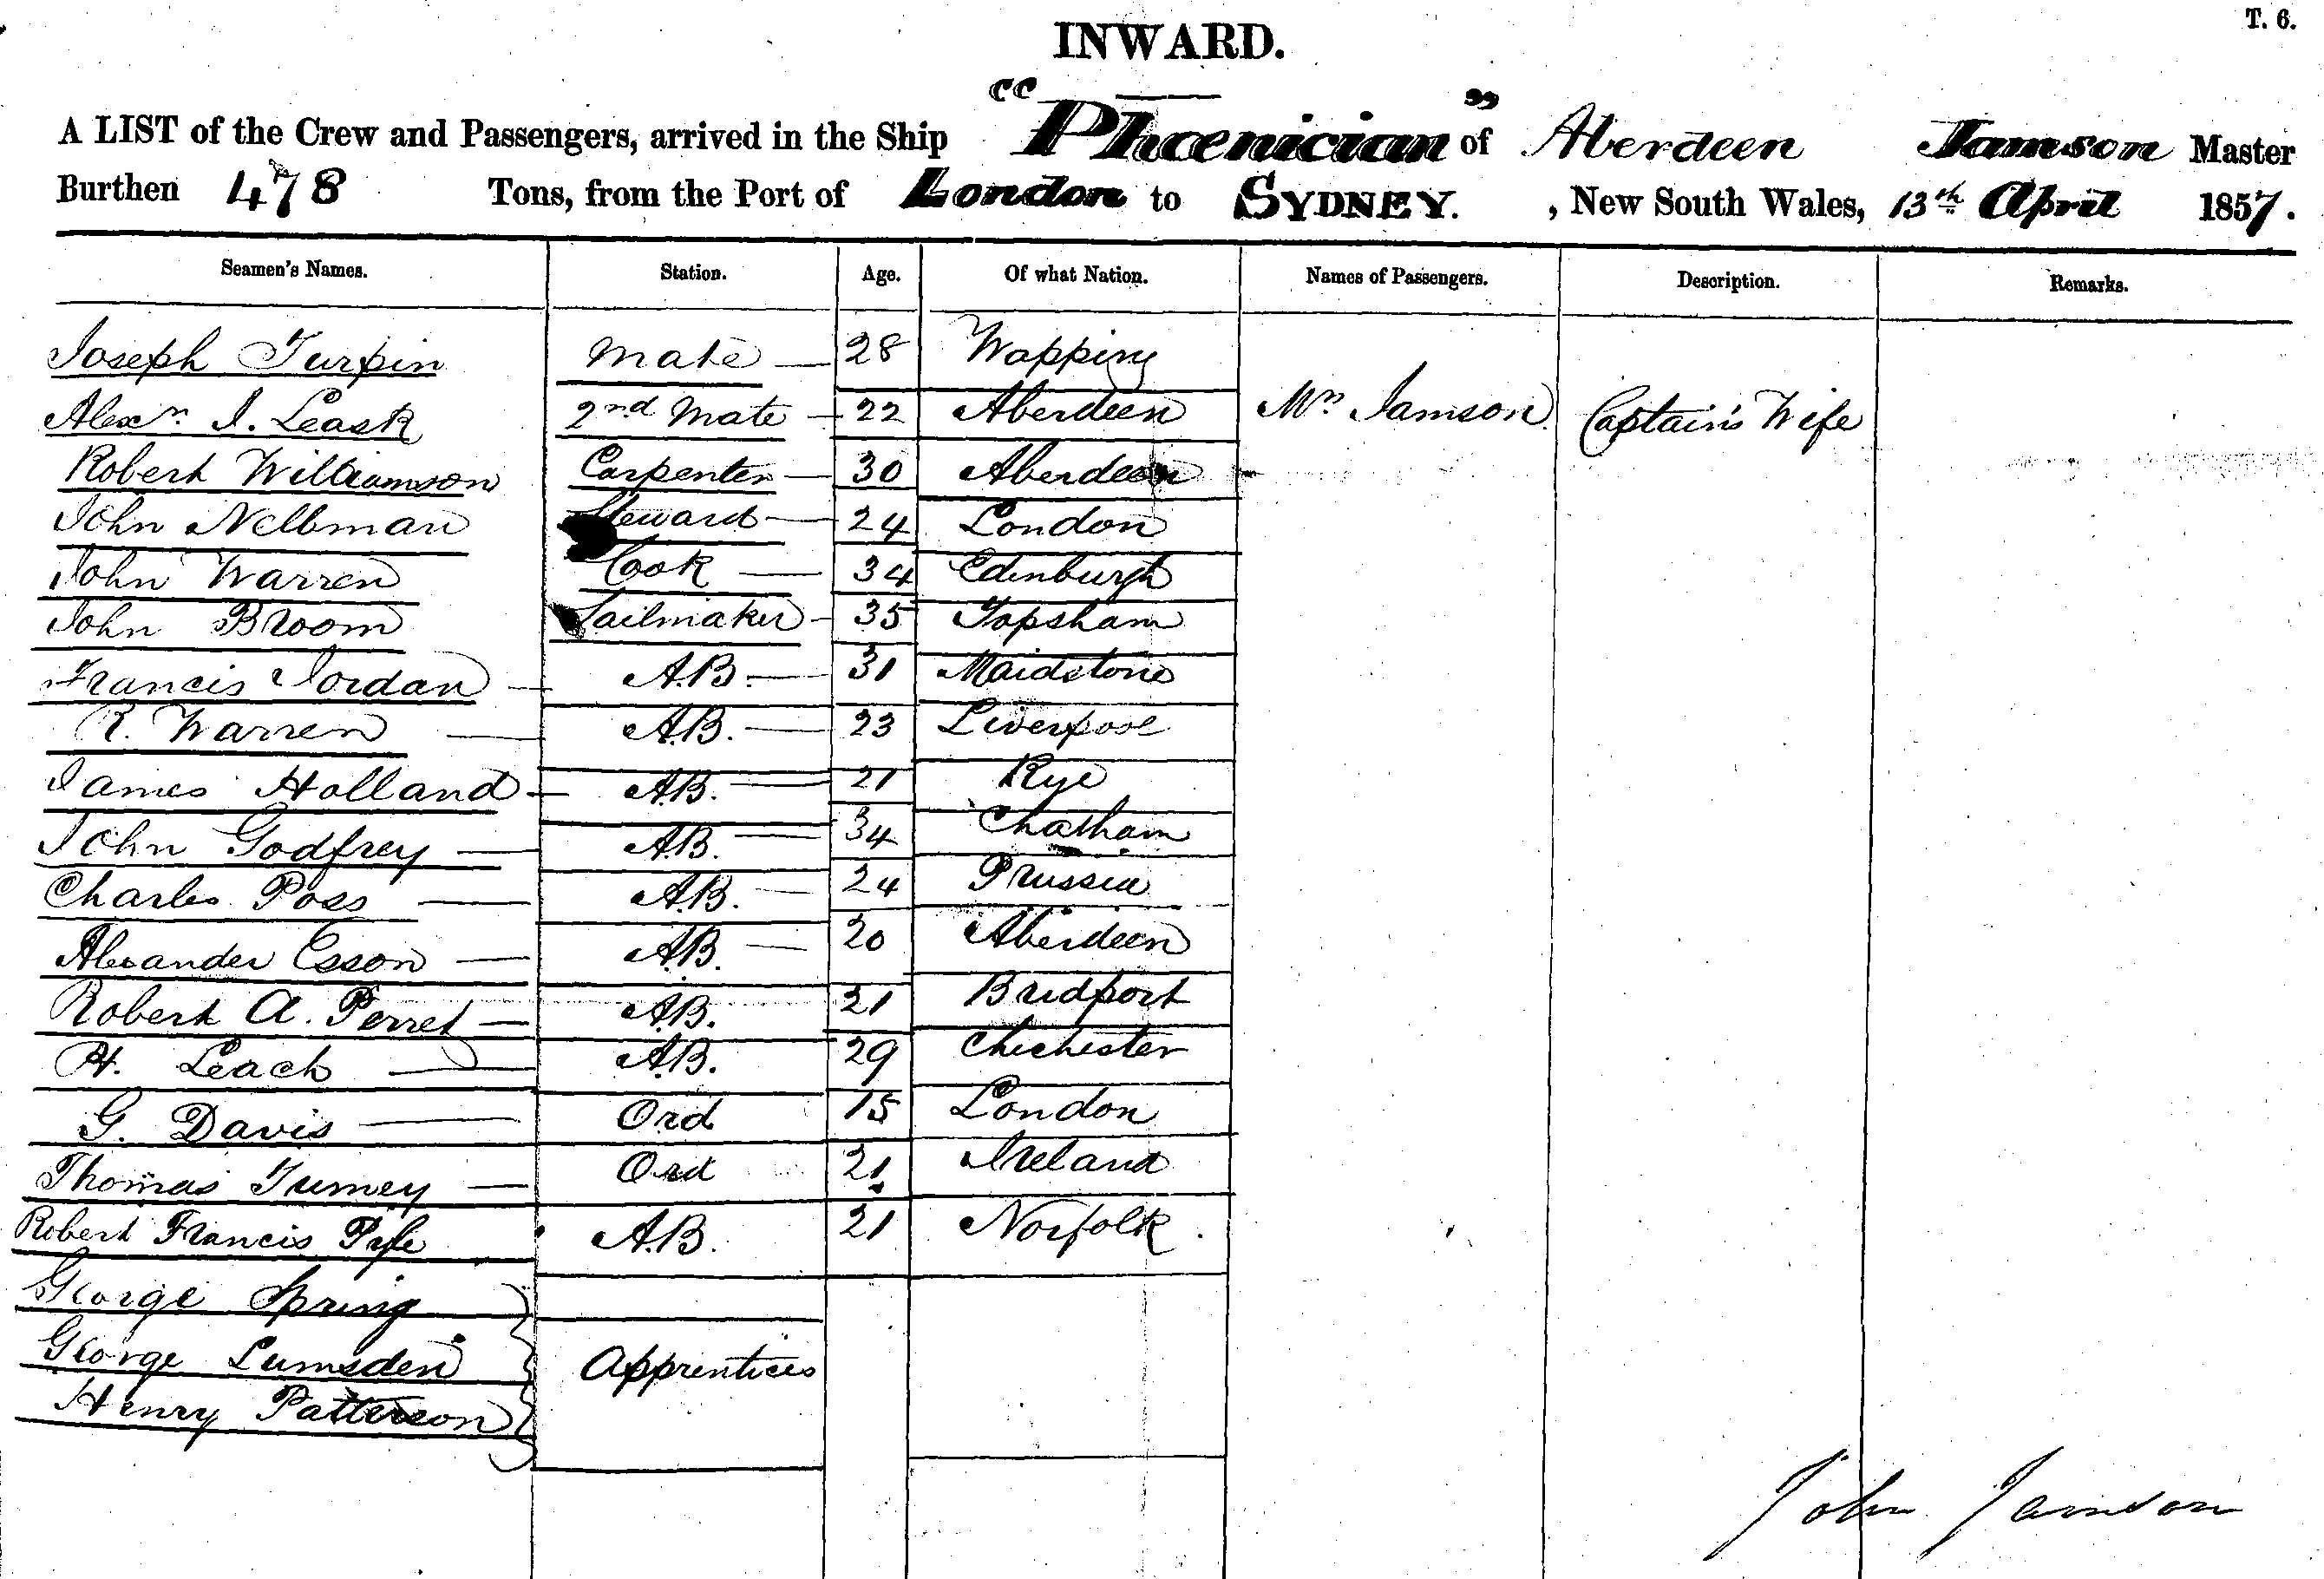 T. 6.
INWARD.
A LIST of the Crew and Passengers, arrived in the Ship "Phœnician" of Aberdeen Jamson Master
Burthen 478 Tons, from the Port of London to SYDNEY. , New South Wales, 13th April 1857.
Seamen's Names. Station. Age. Of what Nation. Names of Passengers. Description. Remarks.
Joseph Turpin Mate 28 Wapping
Alexr. J. Leask 2nd Mate 22 Aberdeen Mrs Jamson Captain's Wife
Robert Williamson Carpenter 30 Aberdeen
John Steward 24 London
John Warren Cook 34 Edinburgh
John Broom Sailmaker 35 Topsham
Francis Jordan A.B. 31 Maidstone
R. Warren A.B. 23 Liverpool
James Holland A.B. 21 Rye
John Godfrey A.B. 34 Chatham
Charles Poss A.B. 24 Prussia
Alexander Esson A.B. 20 Aberdeen
Robert A. Perret A.B. 21 Bridport
H. Leach A.B. 29 Chichester
G. Davis Ord 15 London
Thomas Ord 21 Ireland
Robert Francis A.B. 21 Norfolk.
George Spring
George Lumsden Apprentices
Henry Patterson
John Jamson